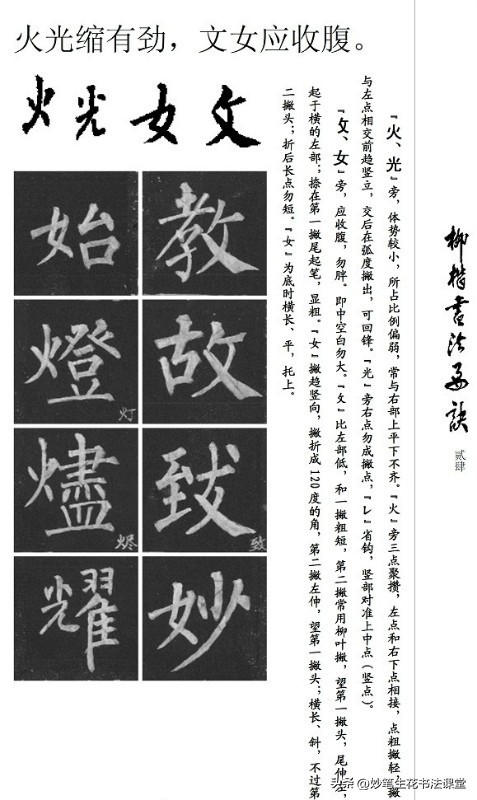 火光缩有劲，文女应收腹。
火光女攵
『火、光』旁，体势较小，所占比例偏弱，常与右部上平下不齐。『火』旁三点聚攒，左点和右下点相接，点粗撇轻，撇
与左点相交前趋竖立，交后在弧度撇出，可回锋。『光』旁右点勿成撇点，『乚』省钩，竖部对准上中点（竖点）。
『攵、女』旁，应收腹，勿胖。即中空白勿大。『攵』比左部低，和一撇粗短，第二撇常用柳叶撇，望第一撇头，尾伸左，
起于横的左部；捺在第一撇尾起笔，显粗。『女』撇趋竖向，撇折成120度的角，第二撇左伸，望第一撇头；横长、斜，不过第
二撇头；折后长点勿短。『女』为底时横长、平，托上。
始 教
燈 灯 故
燼 烬 致 致
耀 妙
柳楷書法要訣
贰肆
头条 @妙笔生花书法课堂